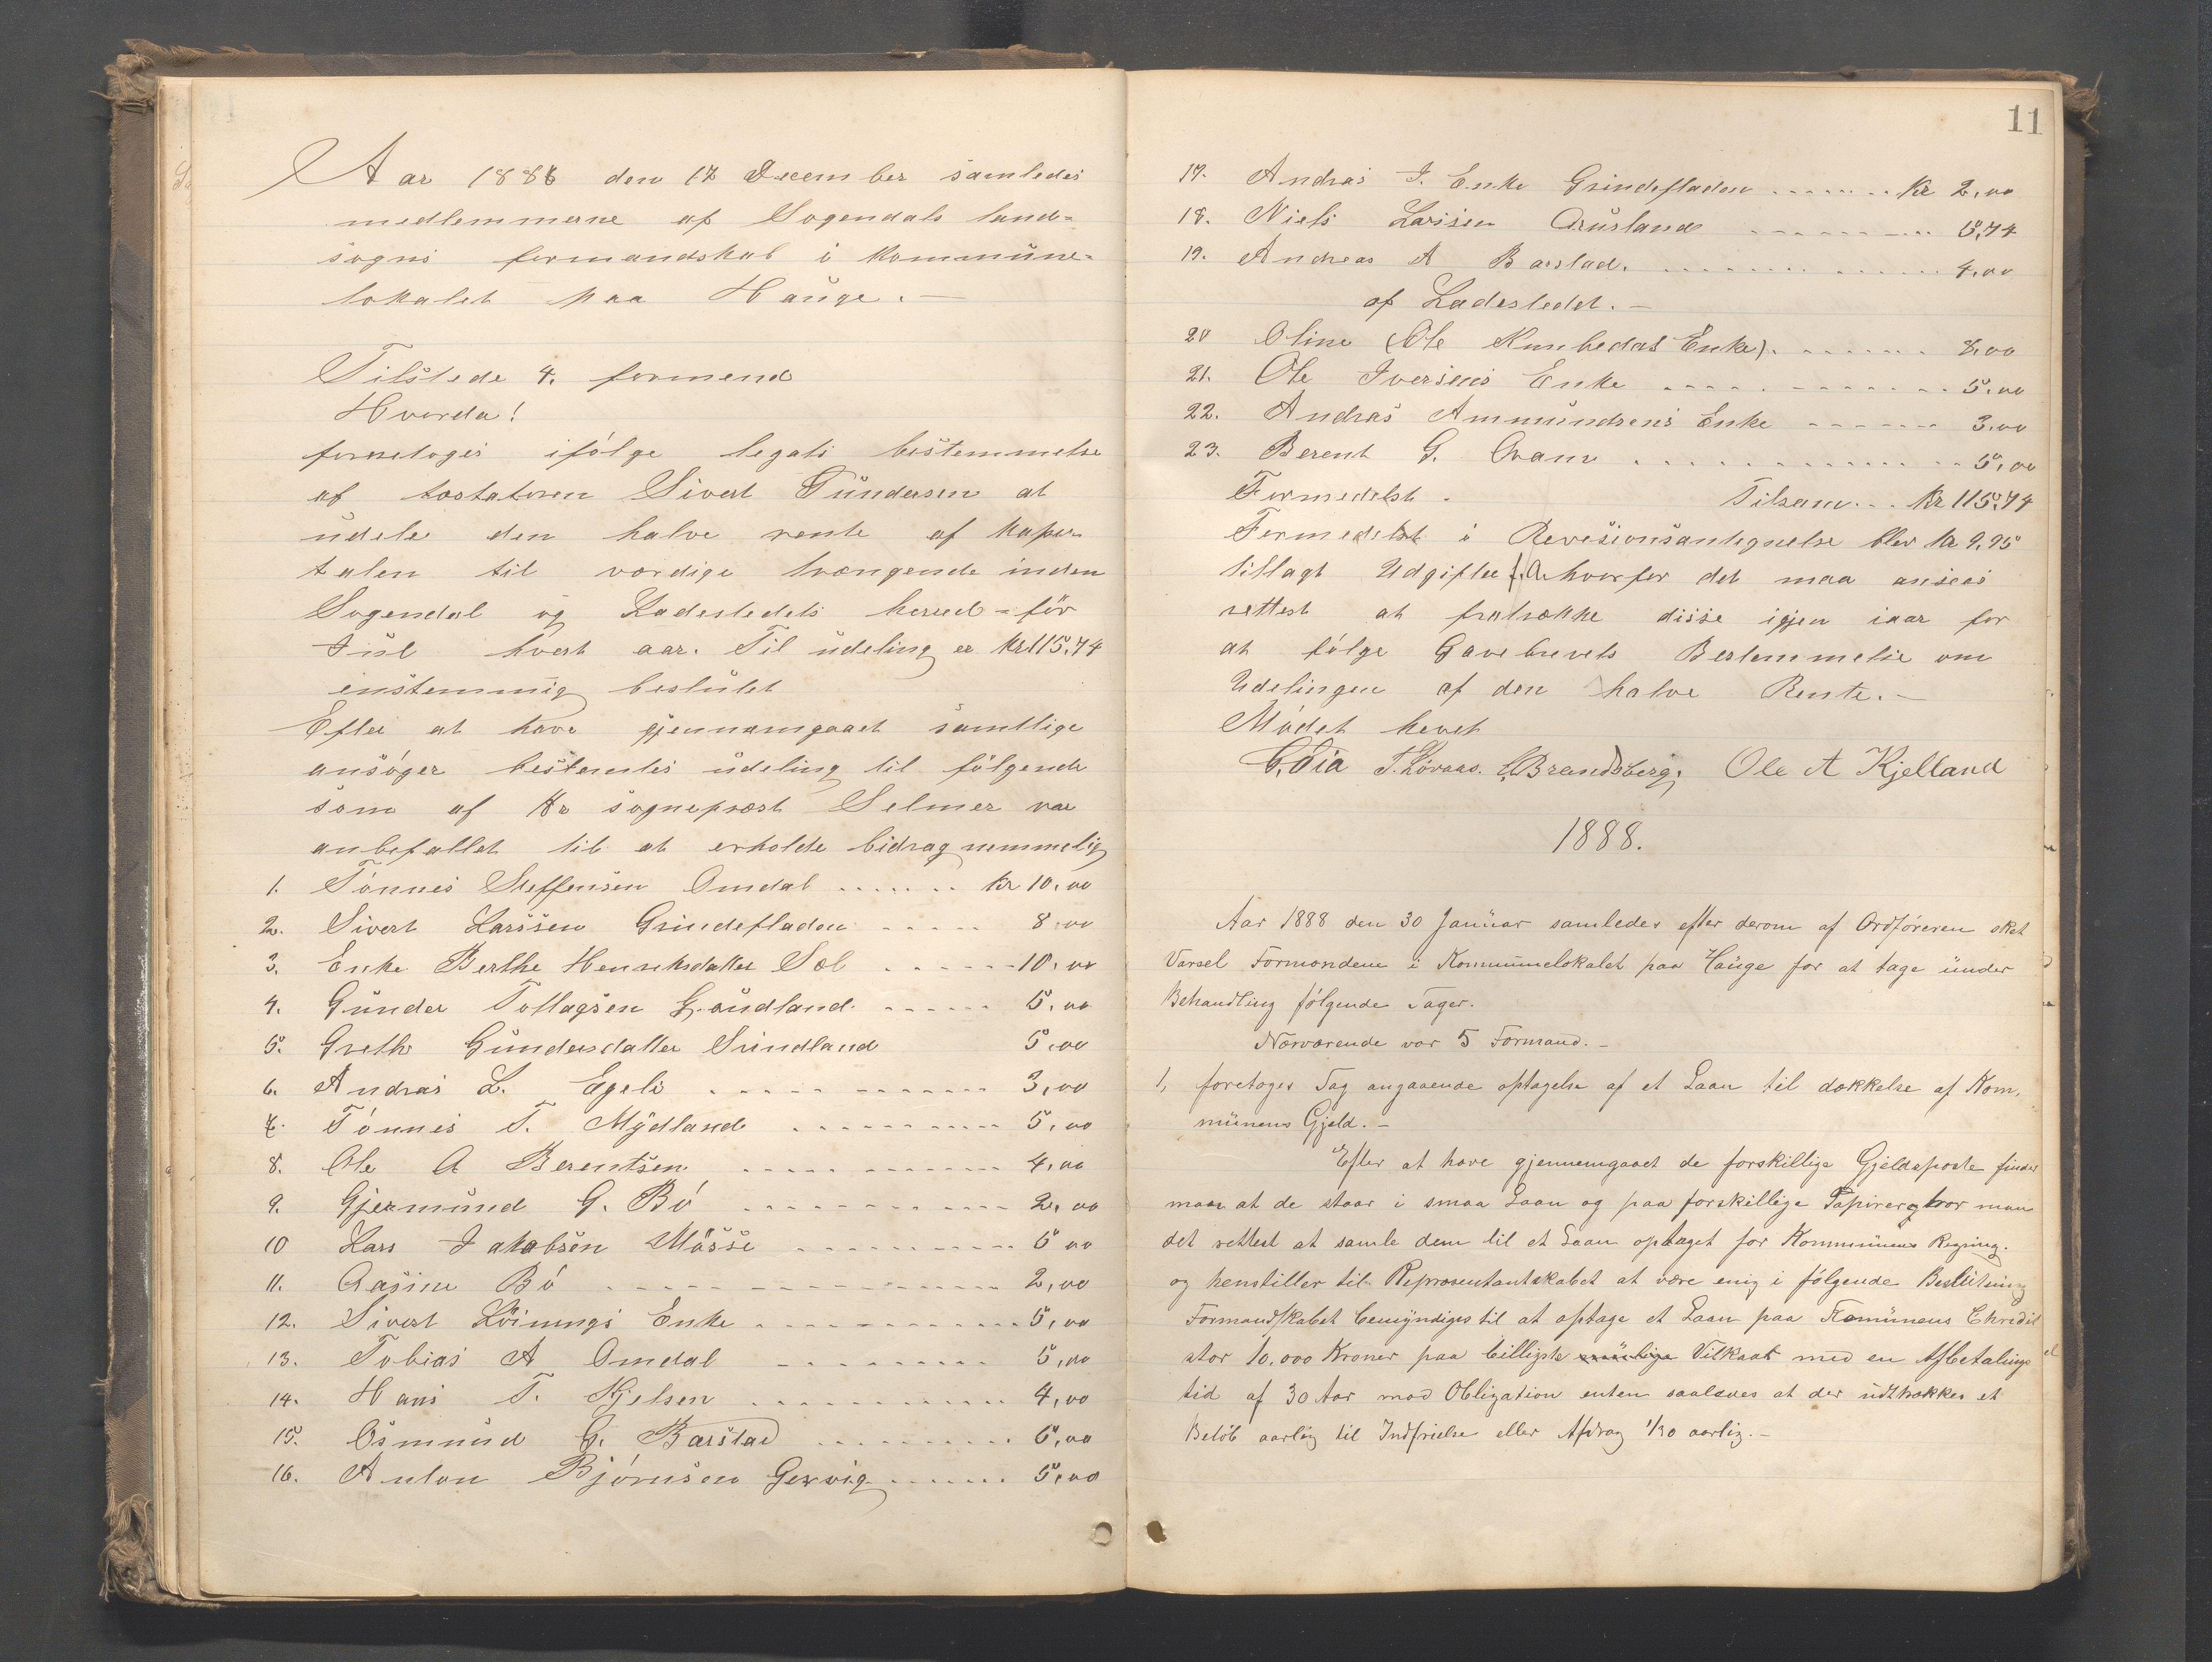 Aar 1886 den 17 December samledes
medlemmerne af Sogendals land-
sogns formandskab i kommune-
lokalet paa Hauge. —
Tilstede 4. formend
Hvorda!
foretoges ifólge legats bestemmelse
af tastatoren Sivert Gundersen at
udele den halve rente af kapi-
talen til værdige trængende inden
Sogendal og Ladestedets herred - før
Jul hvert aar. Til udeling er kr 115,74
enstemmig beslutet
Efter at have gjennemgaaet samtlige
ansóger bestemtes udeling til følgende
som af Hr sogneprest Selmer var
anbefallet til at erholde bidrag nemmelig
1. Tónnes Steffensen Omdal ....... kr 10,00
2. Sivert Larssen Grindefladen ..... 8,00
3. Enke Berthe Henriksdatter Sæl ...... 10,00
4. Gunder Tollagsen Grundland ...... 5,00
5. Grethe Gundersdatter Svindland 5,00
6. Andras L. Egeli ............ 3,00
7. Tónnes T. Mydland .......... 5,00
8. Ole A Berentsen ............ 4,00
9. Gjermund G. Bó ............ 2,00
10 Lars Jakobsen Møsse .......... 5,00
11. Aasine Bó ............... 2,00
12. Sivert Løinings Enke ............ 5,00
13. Tobias A Omdal ......... 5,00
14. Hans T. Kjelsen ........... 4,00
15. Osmund G. Barstad ......... 5,00
16. Anton Bjórnsen Gervig ....... 5,00
11
17. Andras J. Enke Grindefladen ....... kr 2,00
18. Niels Larssen Årusland ......... 6,74
19. Andreas A Barstad. ............. 4,00
af Ladestedet. —
20 Oline (Ole Knubedals Enke). ...... 8,00
21. Ole Iversens Enke ............ 5,00
22. Andras Ammundsens Enke ...... 3,00
23. Berent G. Tram ............. 5,00
Formedelst . Tilsam... Kr 115,74
Formedelst i Revisionsantegnelse blev kr 9,95
tillagt Udgifter f. A hvorfor det maa ansees
rettest at fratrække disse igjen iaar for
at fólge Gavebrevets Bestemmelse om
Udelingen af den halve Rente. —
Módet hevet
G. Dia T. Løvaas. L. Brandsberg. Ole A Kjelland
1888.
Aar 1888 den 30 Januar samledes efter derom af Ordføreren sket
Varsel Formendene i Kommunelokalet paa Hauge for at tage under
Behandling følgende Sager.
Nærværende var 5 Formænd. —
1, foretoges Sag angaaende optagelse af et Laan til dækkelse af Kom-
munens Gjeld. —
Efter at have gjennemgaaet de forskillige Gjeldsposte finder
man at de staar i smaa Laan og paa forskillige Papirer, tror man
det rettest at samle dem til et Laan optaget for Kommunens Regning.
og henstiller til Representantskabet at være enig i følgende Beslutning
Formandskabet bemyndiges til at optage et Laan paa Komunens Chredit
stor 10.000 Kroner paa billigste mulige Vilkaar med en Afbetalings
tid af 30 Aar mod Obligation enten saaledes at der udtrækkes et
Beløb aarlig til Indfrielse eller Afdrag 1/30 aarlig. —